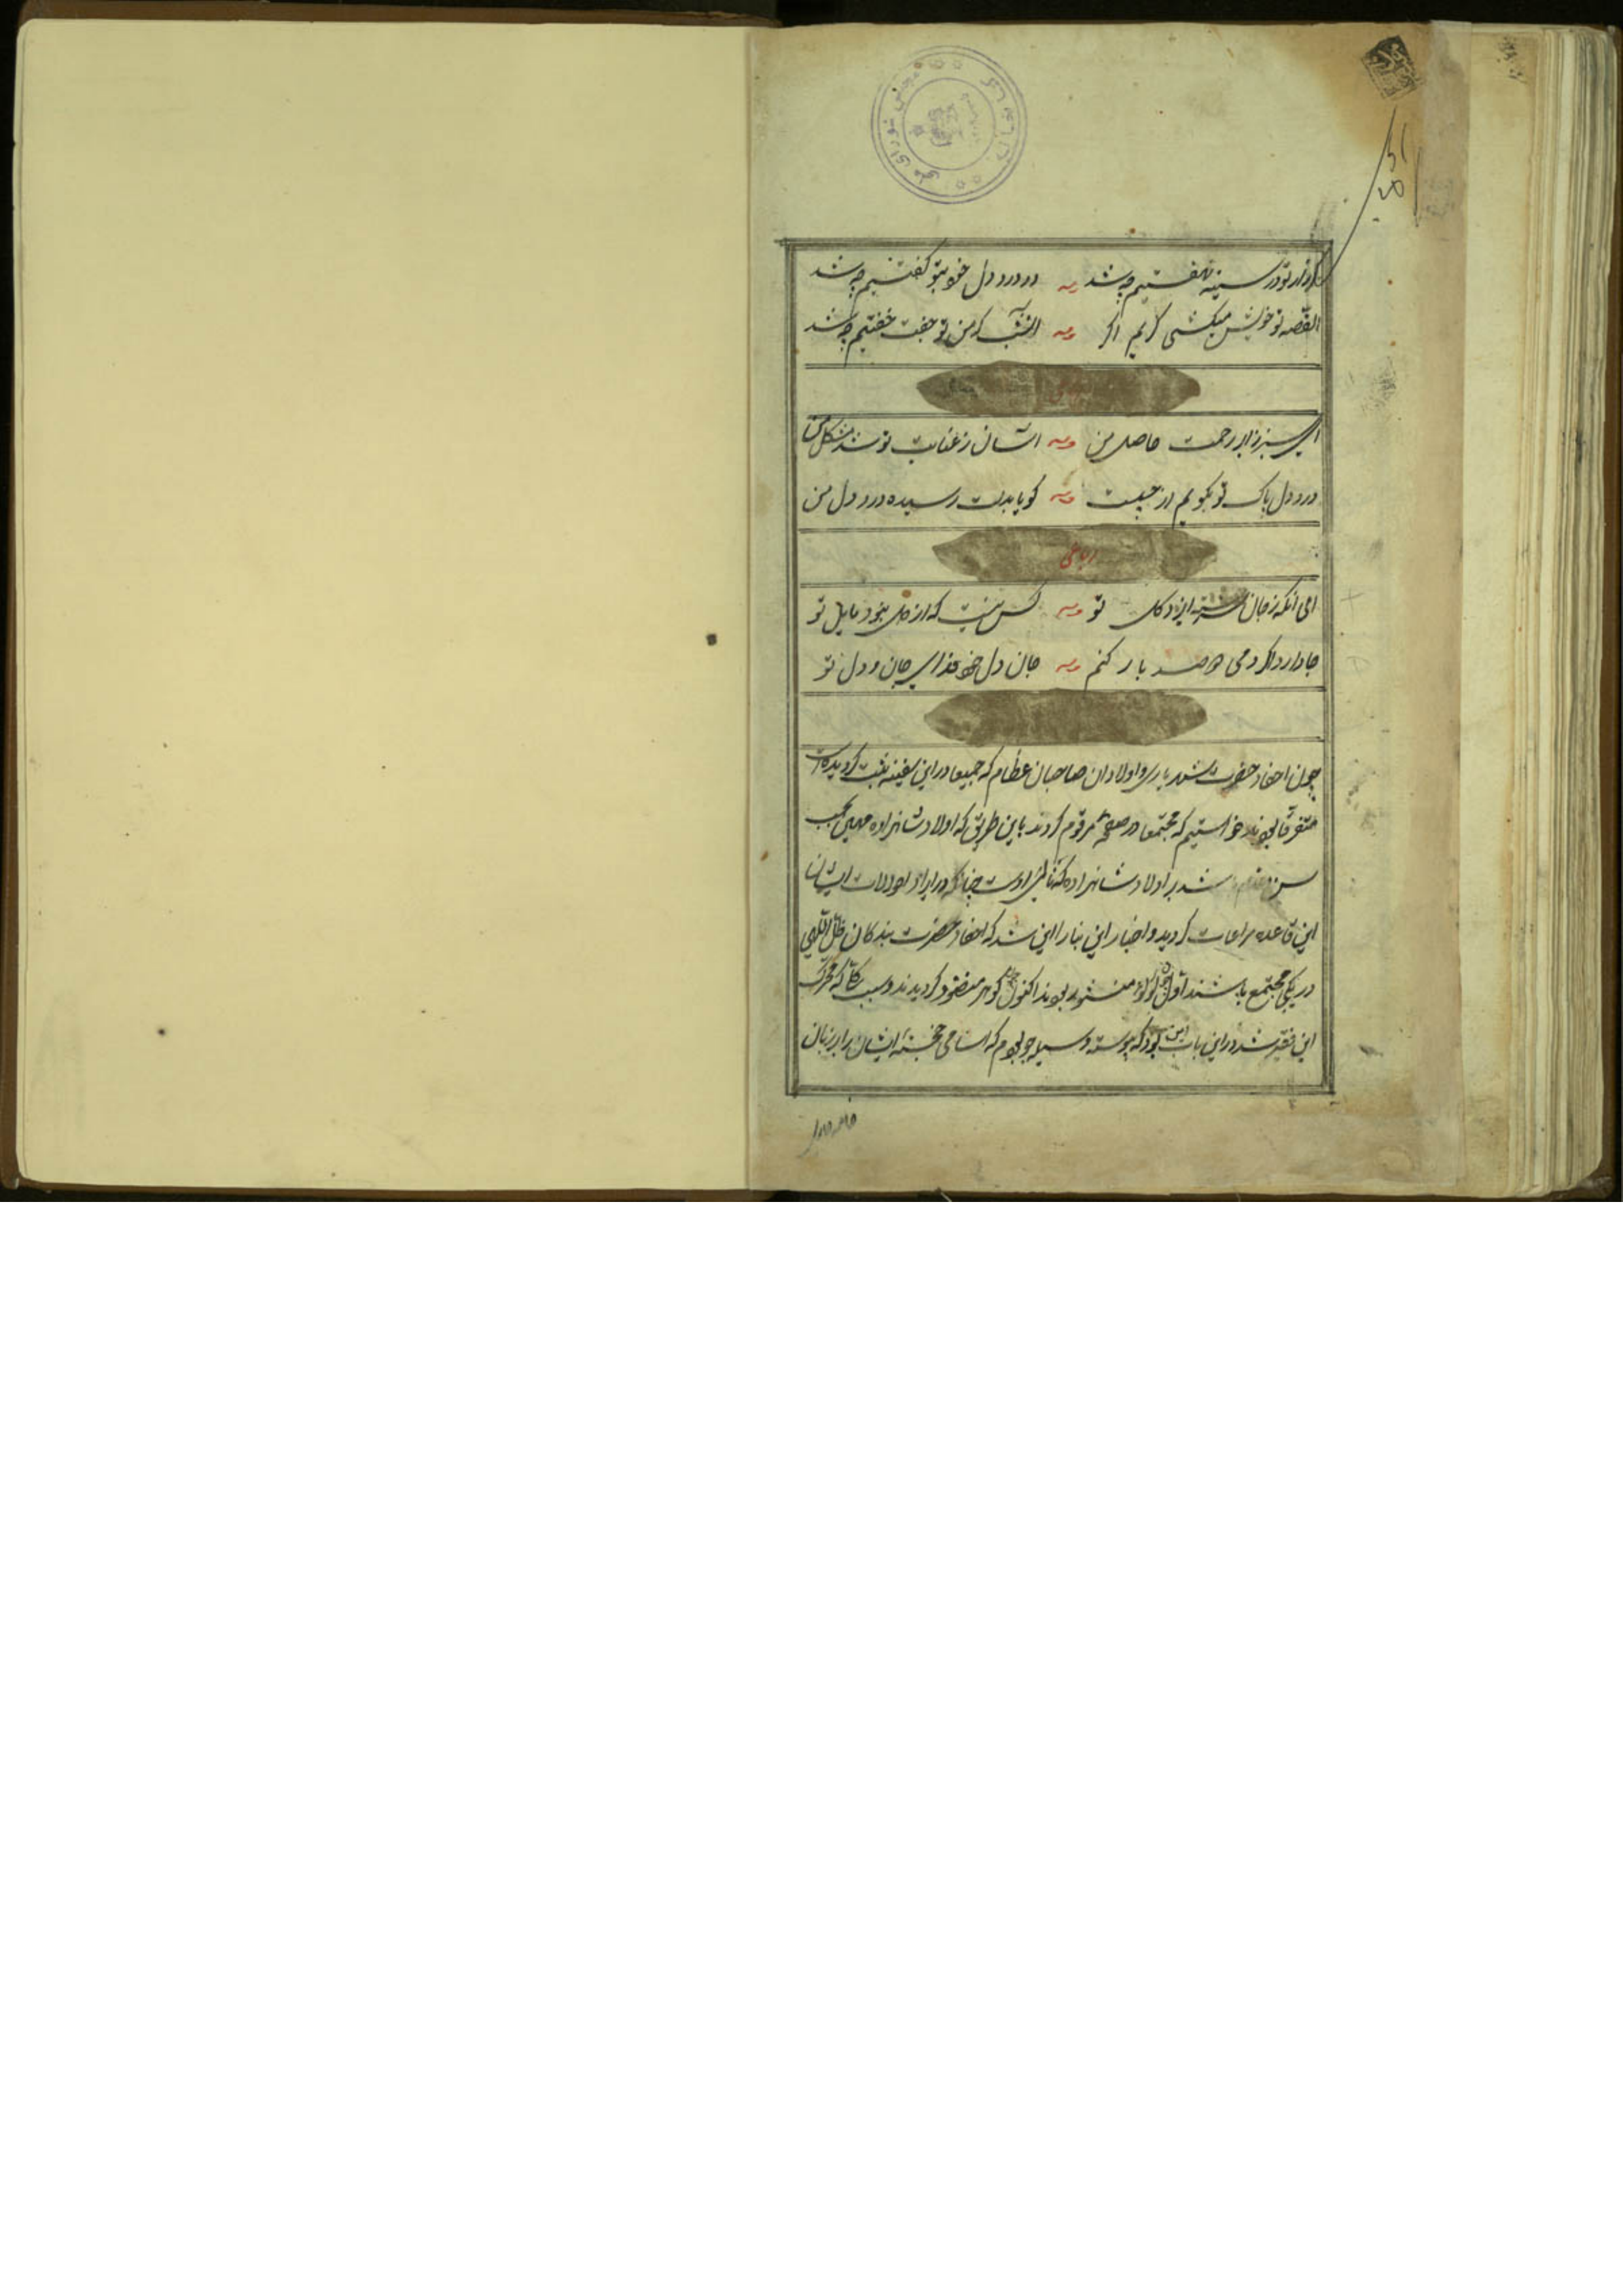 گر راز تو در سینه نهفتیم چه شد
ور درد دل خود بتو گفتیم چه شد
القصه تو خویش میکشی گریم اگر
یکشب که من تو جفت خفتیم چه شد
ای سبز ز ابر رحمت حاصل من
آسان ز عنایت تو شد مشکل من
درد دل پاک تو بگویم از چیست
گویا بدلت رسیده درد دل من
رباعی
ای آنکه ز جان سرشته ایزد گل تو
کس نیست که از دل نبود مایل تو
جا دارد اگر دمی دو صد بار کنم
جان دل خود فدای جان و دل تو
چون احفاد حضرت شهریاری و اولاد ان صاحبان عظام که جمیعا در این سفینه ثبت گردیده است
متفرقا بودند خواستیم که مجتمعا در صفحه مرقوم گردند باین طریق که اولاد شاهزاده مهین بحسب
سن مقدم شد بر اولاد شاهزاده که تالی اوست چنانکه در ایراد احوالات ایشان
این قاعده مراعات گردید و اختیار این بنا را این شد که احفاد حضرت بندگان ظل اللهی
در یکجا مجتمع باشند اول چون لؤلؤ منثور بودند اکنون چون گوهر منضود گردیدند و سبب که محرک
این فقیر شد در این باب این بود که پیوسته وسیله جو بودم که اسامی خجسته ایشان را بر زبان